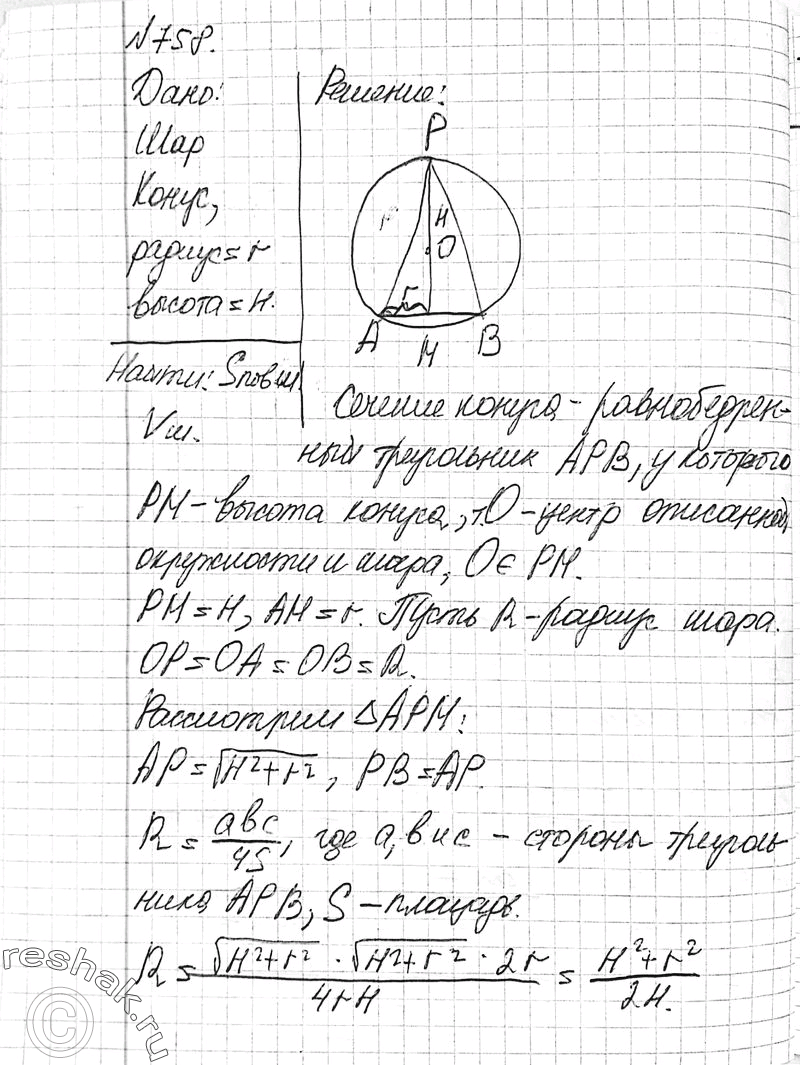 №758.
Дано:
Шар
Конус,
радиус = r
высота = H.
Найти: Sпов ш.
Vш.
Решение:
P
H
O
r
A
M
B
Сечение конуса - равнобедрен-
ный треугольник APB, у которого
PM - высота конуса, т.O - центр описанной
окружности и шара, O ∈ PM.
PM = H, AM = r. Пусть R - радиус шара.
OP = OA = OB = R.
Рассмотрим ΔAPM:
AP = √(H²+r²), PB = AP.
R = abc/4S, где a, b и c - стороны треуголь-
ника APB, S - площадь.
R = (√(H²+r²) · √(H²+r²) · 2r)/(4rH) = (H²+r²)/(2H).
reshak.ru